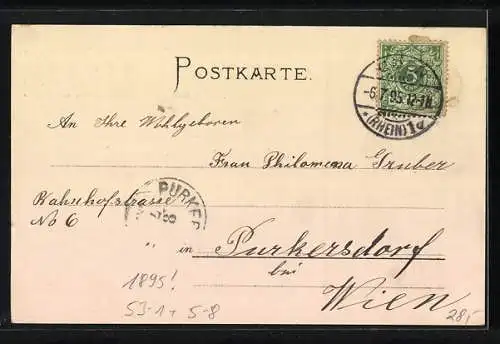 POSTKARTE.
5
-6.7.95.12-1N.
*(RHEIN)1d
An Ihre Wohlgeboren
Frau Philomena Gruber
Bahnhofstrasse
No 6
PURKER
8
7
" in Purkersdorf
bei
Wien
1895!
53-1+5-8
28,-